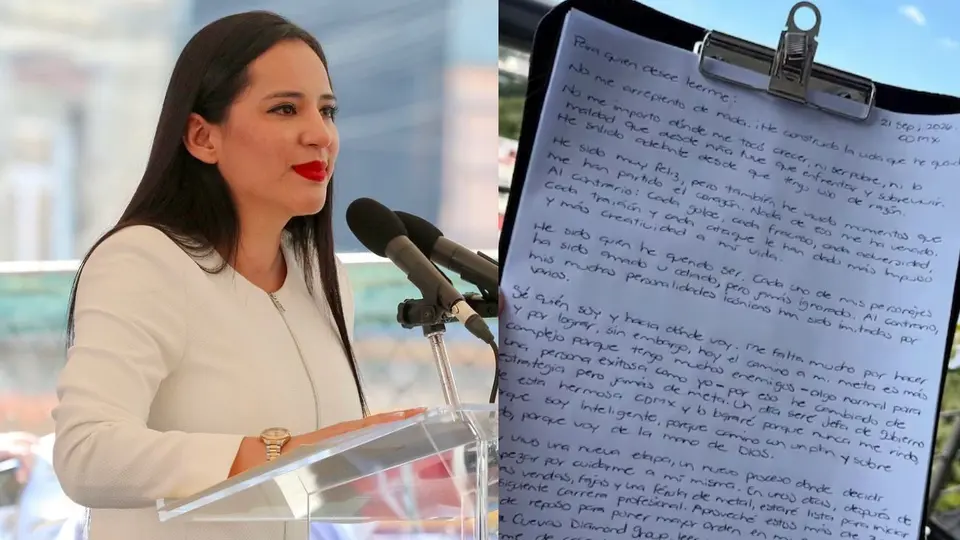 Para quien desee leerme:
21 sep, 2026.
CDMX
No me arrepiento de nada. ¡He construido la vida que he querido
No me importó dónde me tocó crecer, ni ser pobre, ni la
maldad que desde niña tuve que enfrentar y sobrevivir.
He salido adelante desde que tengo uso de razón.
He sido muy feliz, pero también he vivido momentos que
me han partido el corazón. Nada de eso me ha vencido.
Al contrario: cada golpe, cada fracaso, cada adversidad,
cada traición y cada ataque le han dado más impulso
y más creatividad a mi vida.
He sido quien he querido ser. Cada uno de mis personajes
ha sido amado u odiado, pero jamás ignorado. Al contrario,
mis muchas personalidades han sido imitadas por
varios.
Sé quién soy y hacia dónde voy. Me falta mucho por hacer
y por lograr, sin embargo, hoy el camino a mi meta es más
complejo porque tengo muchos enemigos -algo normal para
una persona exitosa como yo- por eso he cambiado de
estrategia pero jamás de meta. Un día seré Jefa de Gobierno
esta hermosa CDMX y lo lograré porque nunca me rindo,
que soy inteligente, porque camino con un don y sobre
porque voy de la mano de DIOS.
vivo una nueva etapa, un nuevo proceso donde decidí
pezar por cuidarme a mí misma. En unos días, después de
vendas, fajas y una férula de metal, estaré lista para iniciar
siguiente carrera profesional. Aproveché estos más de
de reposo para poner mayor orden en
Cuevas Diamond group,